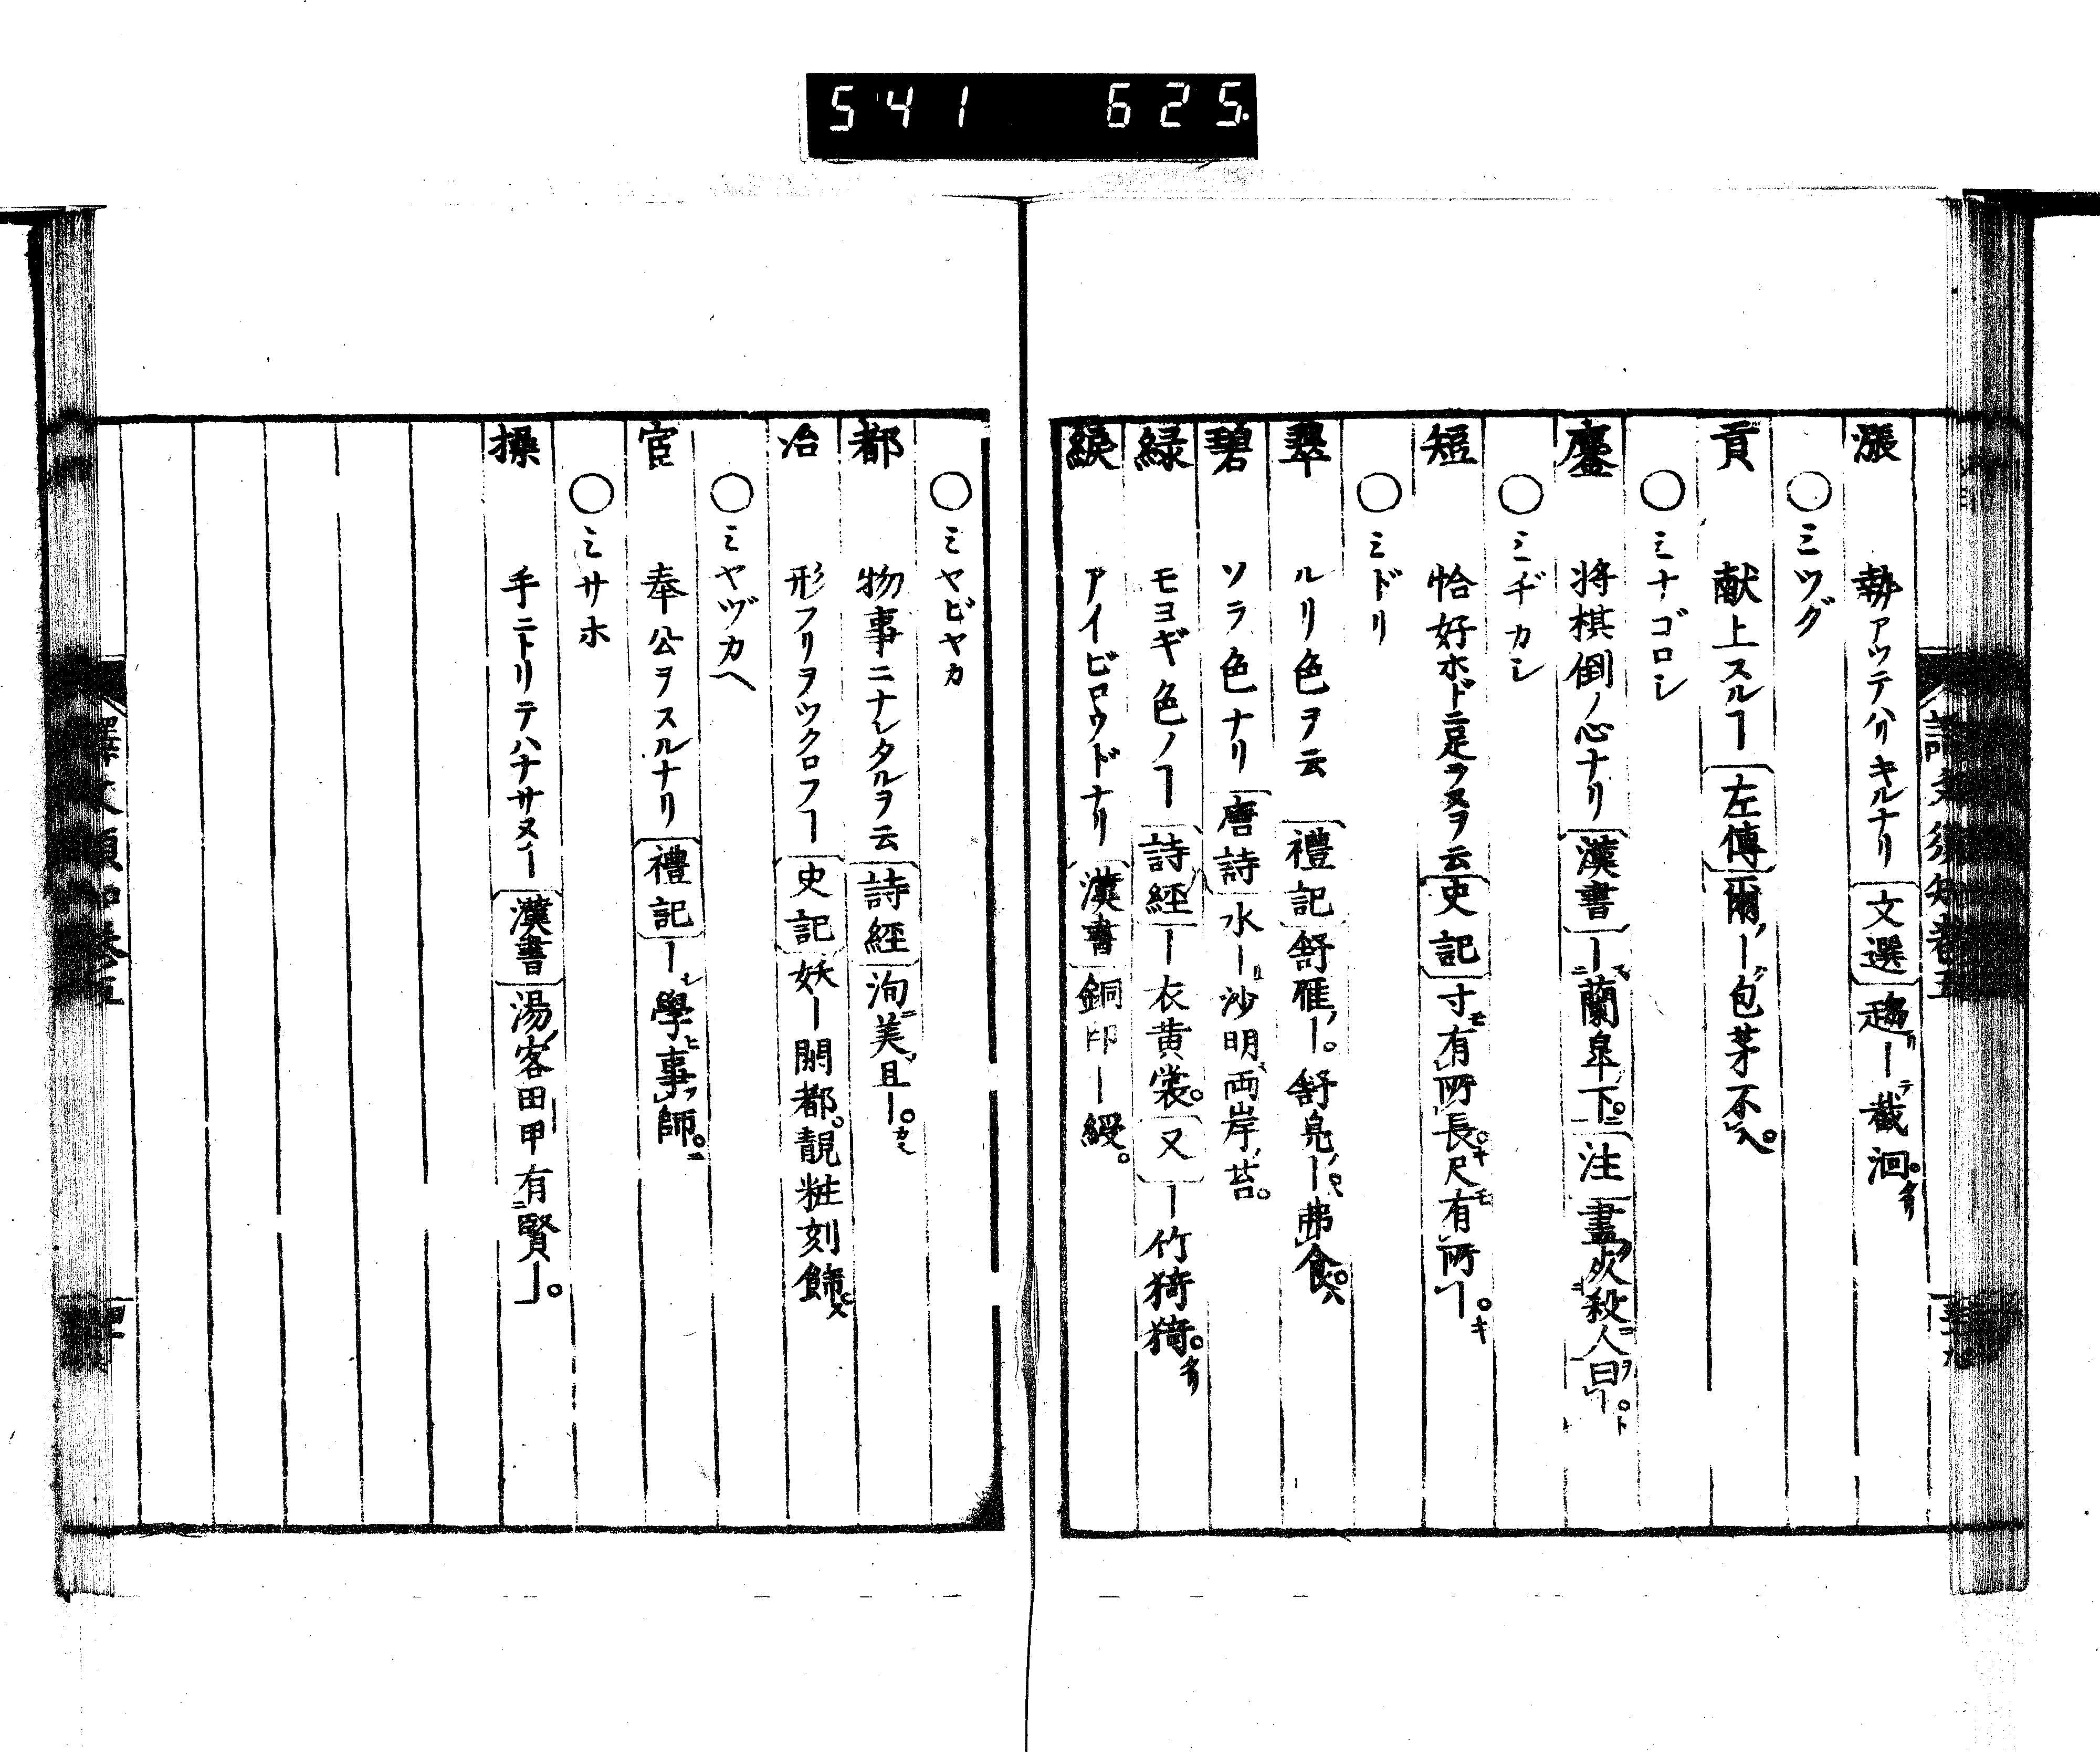 541 625.
漲 勢アツテハリキルナリ 文選 趨リー テ截洄。タリ
○ミツグ
貢 献上スルヿ 左傳 爾ノー包茅不レ入。
○ミナゴロシ
鏖 将棋倒ノ心ナリ 漢書 ー二蘭皐下一。注 盡死殺人曰レー。ト
○ミヂカシ
短 恰好ホドニ足ラヌヲ云 史記 寸モ有レ所レ長。キ尺モ有レ所レー。キ
○ミドリ
翠 ルリ色ヲ云 禮記 舒雁ノー。舒鳧ノー。ハ弗レ食。ハ
碧 ソラ色ナリ 唐詩 水ー沙明両岸ノ苔。
緑 モヨギ色ノヿ 詩経 ー衣黄裳。又 ー竹猗猗。タリ
綟 アイビロウドナリ 漢書 銅印ー綬。
○ミヤビヤカ
都 物事ニナレタルヲ云 詩経 洵ニ美ニ且ー。カニ
冶 形フリヲツクロフヿ 史記 妖ー閑都。靚粧刻飾ス
○ミヤヅカヘ
宦 奉公ヲスルナリ 禮記 ーシ學ヒ事レ師。ニ
○ミサホ
操 手ニトリテハナサヌヿ 漢書 湯ノ客田甲有二賢ー一。